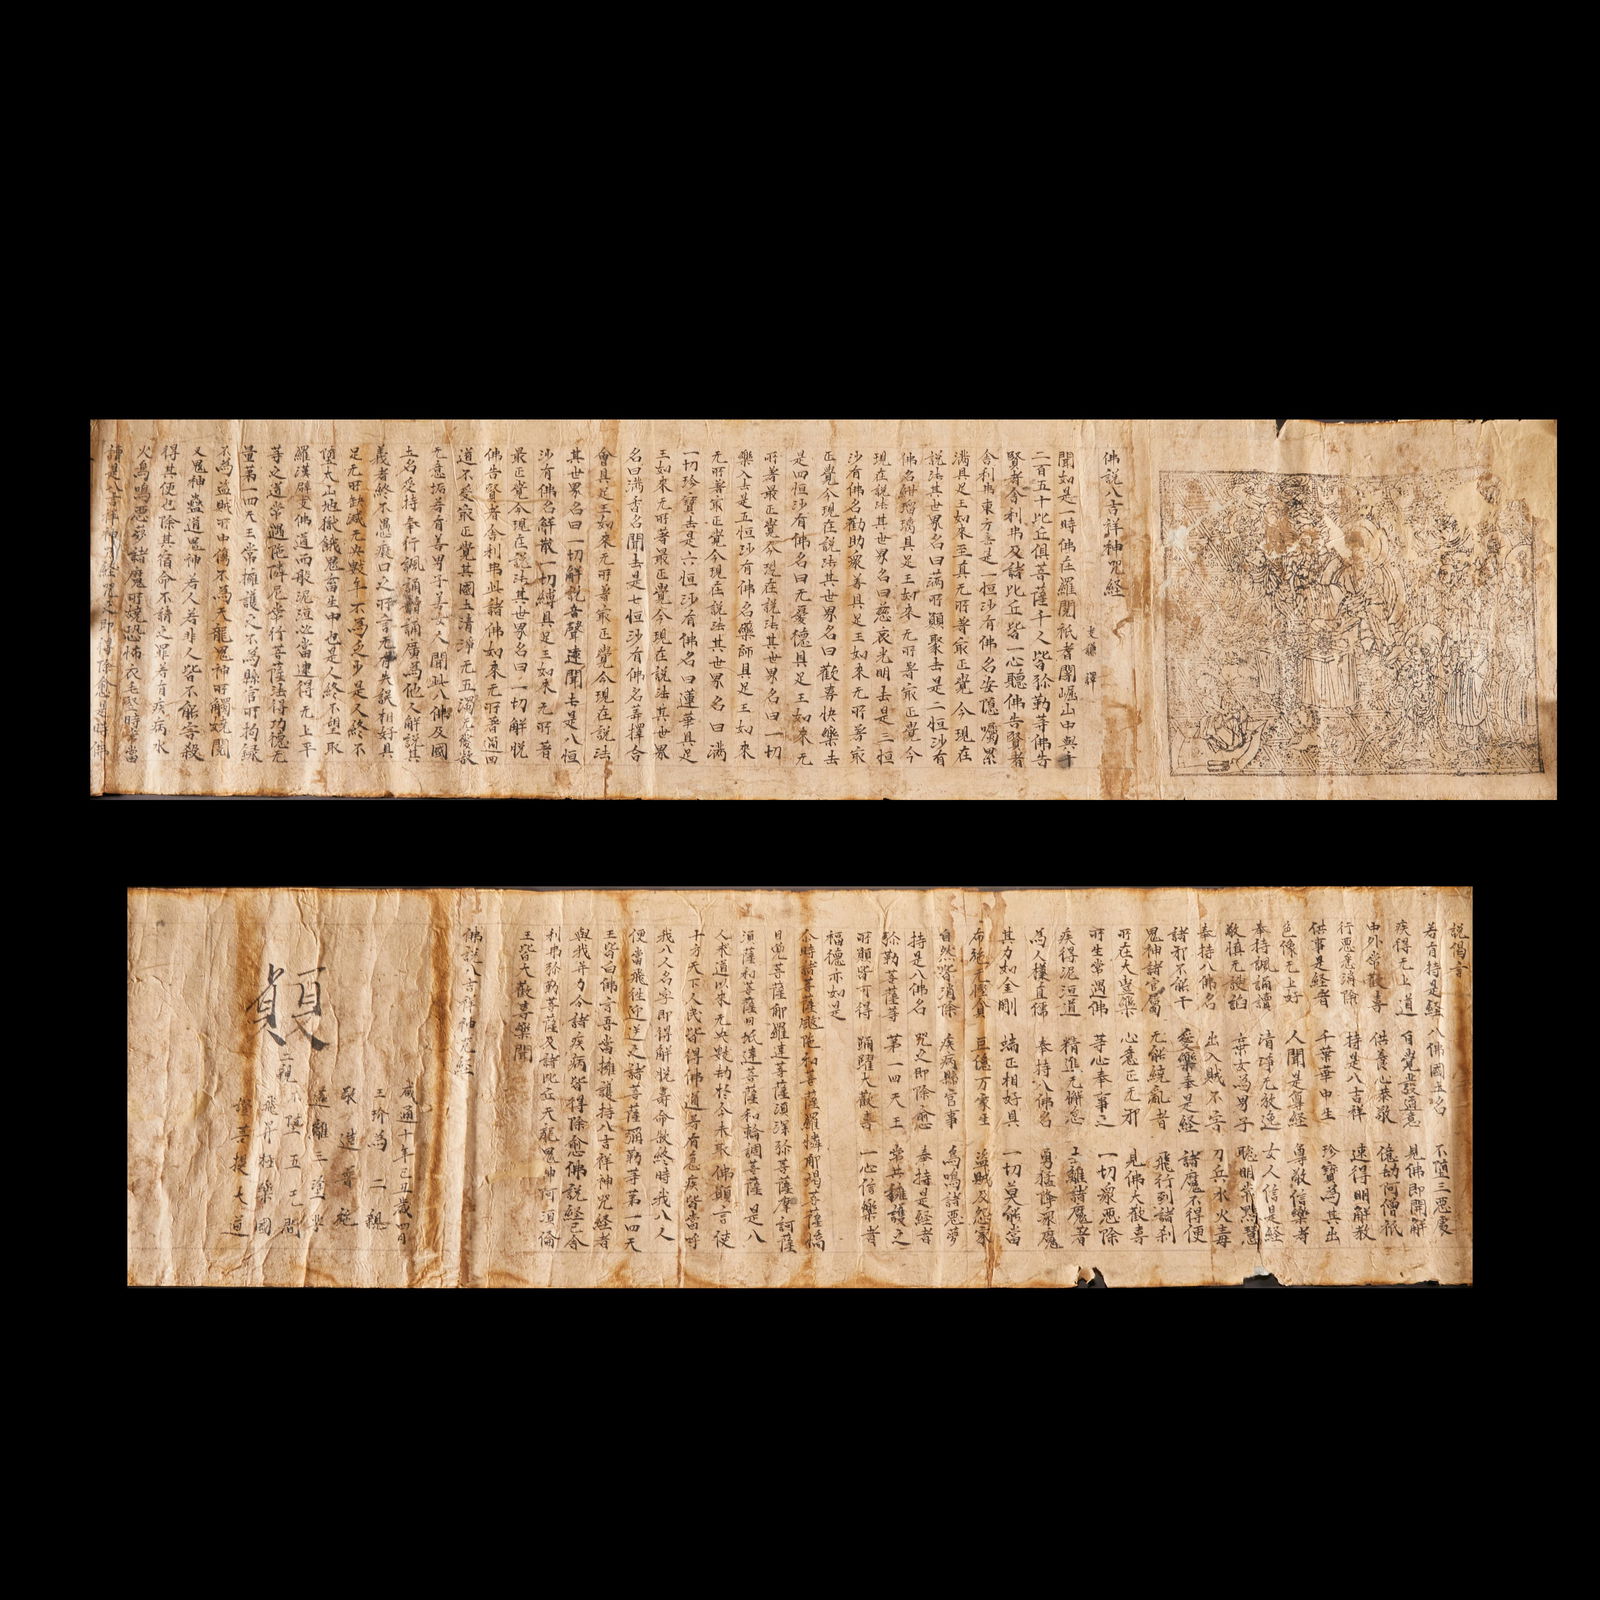 佛說八吉祥神咒經
支謙 譯
聞如是一時佛在羅閱祇耆闍崛山中與千
二百五十比丘俱菩薩千人皆弥勒等佛告
賢者舍利弗及諸比丘皆一心聽佛告賢者
舍利弗東方去是一恒沙有佛名安隱囑累
滿具足王如來至真无所著㝡正覺今現在
說法其世界名曰滿所願聚去是二恒沙有
佛名紺琉璃具足王如來无所著㝡正覺今
現在說法其世界名曰慈哀光明去是三恒
沙有佛名勸助衆善具足王如來无所著㝡
正覺今現在說法其世界名曰歡喜快樂去
是四恒沙有佛名曰无憂德具足王如來无
所著最正覺今現在說法其世界名曰一切
樂入去是五恒沙有佛名藥師具足王如來
无所著㝡正覺今現在說法其世界名曰滿
一切珍寶去是六恒沙有佛名曰蓮華具足
王如來无所著最正覺今現在說法其世界
名曰滿香名聞去是七恒沙有佛名筭擇合
會具足王如來无所著㝡正覺今現在說法
其世界名曰一切解說音聲遠聞去是八恒
沙有佛名解散一切縛具足王如來无所著
最正覺今現在說法其世界名曰一切解脫
佛告賢者舍利弗此諸佛如來无所著過四
道不受㝡正覺其國土清淨无五濁无愛欲
无意垢若有善男子善女人聞此八佛及國
土名受持奉行諷誦讀誦廣為他人解說其
義者終不愚癡口之所言无有失誤相好具
足无所缺減无央數年不為乏少是人終不
墮太山地獄餓鬼畜生中也是人終不望取
羅漢辟支佛道而般泥洹必當逮得无上平
等之道常遇陁隣尼常行菩薩法得功德无
量第一四天王常擁護之不為縣官所拘録
不為盜賊所中傷不為天龍鬼神所觸嬈閱
叉鬼神蠱道鬼神若人若非人皆不能害殺
得其便也除其宿命不請之罪若有疾病水
火鳥鳴惡夢諸魔所嬈恐怖衣毛竪時常當
讀是八吉祥神咒經咒之即得除愈是時佛
說偈言
若有持是經 八佛國土名 不墮三惡處
疾得无上道 自覺發道意 見佛即開解
中外常歡喜 供養心恭敬 億劫阿僧祇
行惡悉消除 持是八吉祥 速得明解教
供事是經者 千葉華中生 珍寶為其出
色像无上好 人聞是尊經 尊敬信樂者
奉持諷誦讀 清淨无放逸 女人信是經
敬慎无誼泊 棄女為男子 聡明常黠慧
奉持八佛名 出入賊不害 刀兵水火毒
諸邪不能干 愛樂奉是經 諸魔不得便
鬼神諸官屬 无能繞亂者 飛行到諸刹
所在大豈樂 心意正无邪 見佛大歡喜
所生常遇佛 等心奉事之 一切衆惡除
疾得泥洹道 精進无懈怠 棄離諸魔者
為人樸直儒 奉持八佛名 勇猛降衆魔
其力如金剛 端正相好具 一切莫能當
布施一愜食 巨億万家生 盜賊及怨家
自然皆消除 疾病縣官事 鳥鳴諸惡夢
持是八佛名 咒之即除愈 奉持是經者
弥勒菩薩等 第一四天王 常共擁護之
所願皆可得 踊躍大歡喜 一心信樂者
福德亦如是
尒時諸菩薩颰陁和菩薩羅憐那竭菩薩憍
曰兜菩薩那羅達菩薩須深弥菩薩摩訶薩
須薩和菩薩因坻達菩薩和輪調菩薩是八
人求道以來无央數劫於今未取佛願言使
十方天下人民皆得佛道若有急疾皆當呼
我八人名字即得解脫壽命欲終時我八人
便當飛往迎逆之諸菩薩彌勒等第一四天
王皆白佛言吾當擁護持八吉祥神咒經者
與我并力令諸疾病皆得除愈佛說經已舍
利弗弥勒菩薩及諸比丘天龍鬼神阿須倫
王皆大歡喜樂聞
佛說八吉祥神咒經
咸通十年己丑歲四日
三玠為二親
敬造普施
願
二親
遠離三塗
不墮五乙
飛昇極樂國
證菩提大道